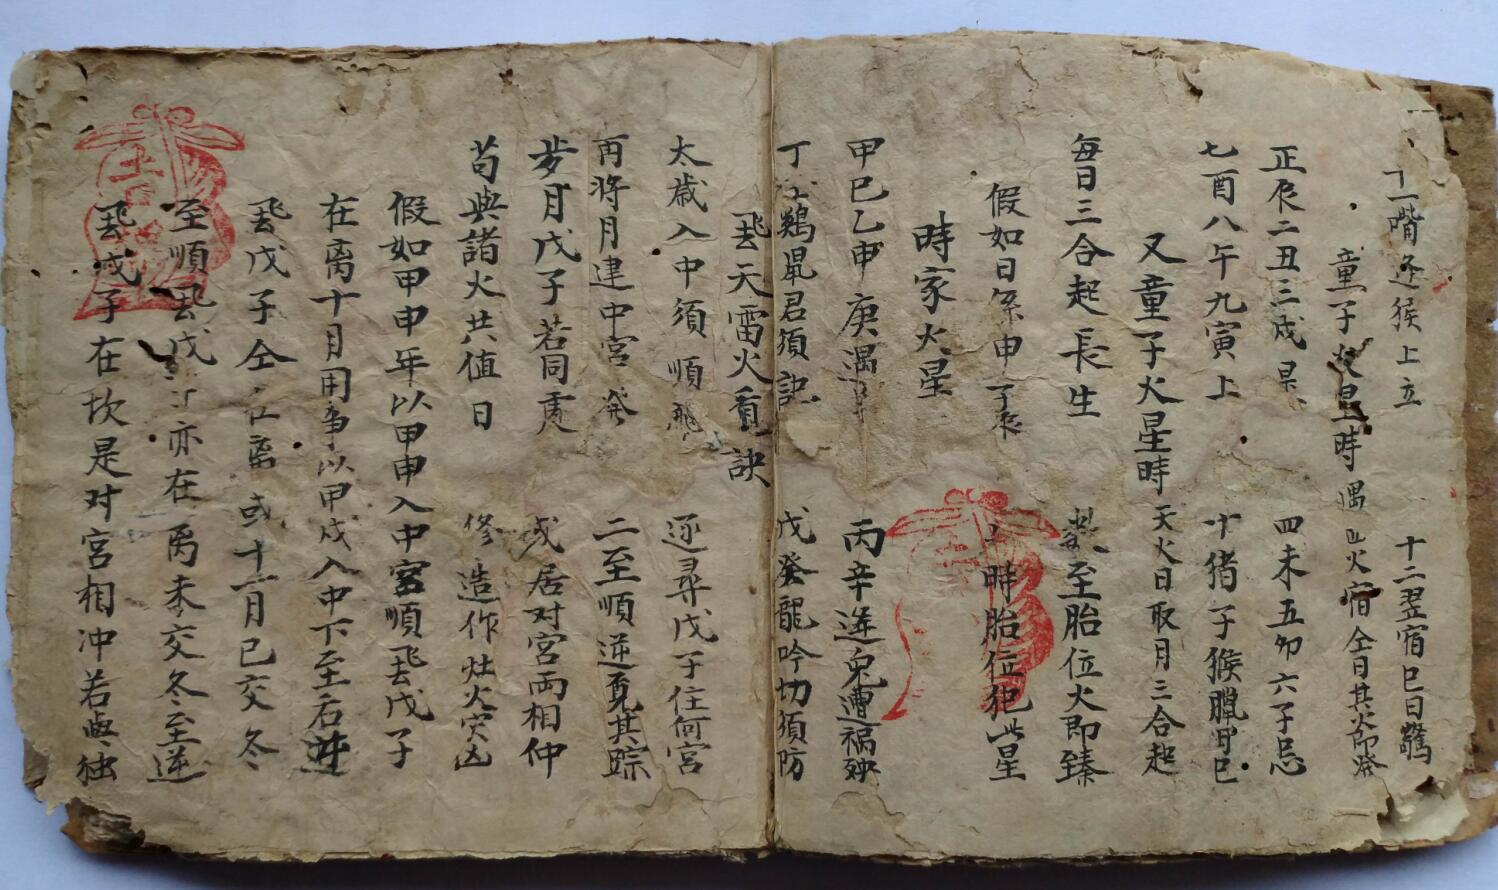 十二階逢猴上立 十二翌宿巳日驚
童子火星時遇 火宿仝日其火即發
正辰二丑三戍是 四未五夘六子忌
七酉八午九寅上 十猪子猴臘月巳
又童子火星時 天火日取月三合起
每日三合起長生 数至胎位火即臻
假如日係申子辰 時胎位犯此星
時家火星
甲巳乙申庚遇 丙辛逢兔遭禍殃
丁 鷄鼠君須記 戊癸龍吟切須防
飛天雷火覔訣
太歲入中須順飛 逐尋戊子住何宮
再將月建中宮發 二至順逆覔其踪
步月戊子若同處 或居对宮両相仲
苟與諸火共值日 修造作灶火灾凶
假如甲申年以甲申入中宮順飛戊子
在离十月用爭以甲戌入中下至后逆
飛戊子仝在离或十一月已交冬
至順飛戊 亦在离未交冬至逆
飛戊子在坎是对宮相冲若與独